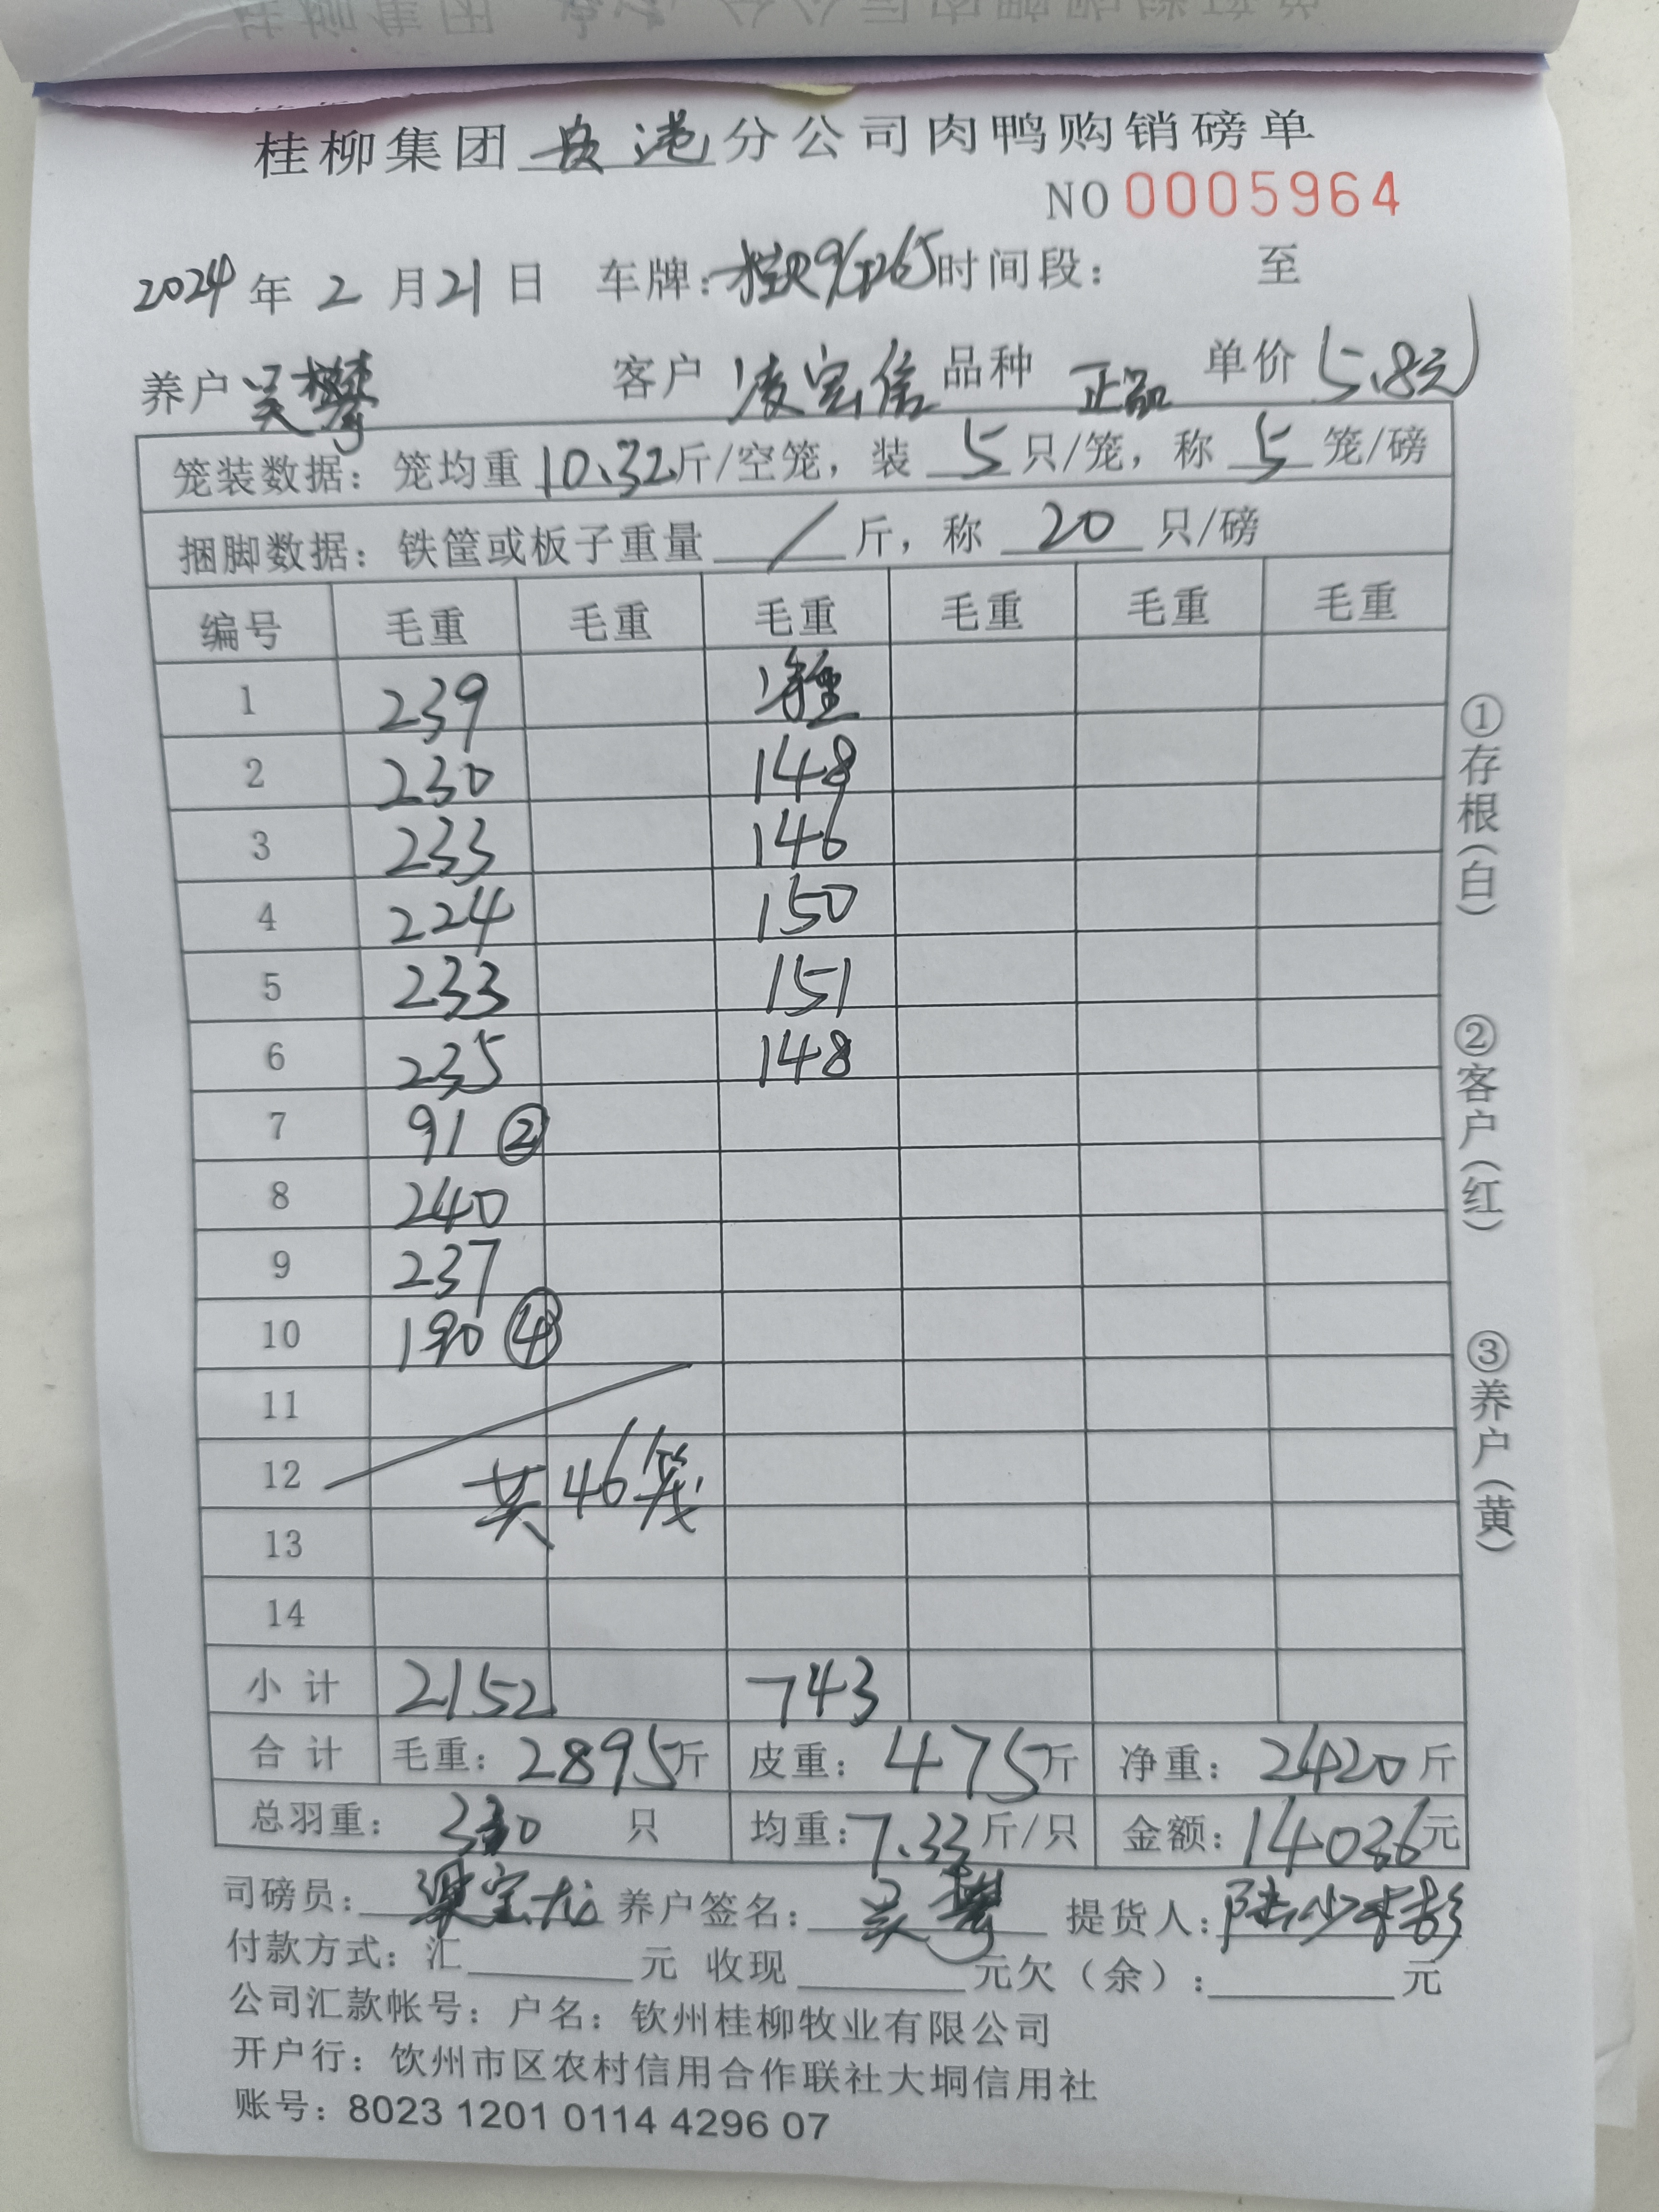 桂柳集团 分公司肉鸭购销磅单
NO 0005964
2024 年 2 月 21 日 车牌: 时间段: 至
养户 吴攀 客户 凌宝信 品种 正品 单价 5.8元
笼装数据: 笼均重 10.32 斤/空笼, 装 5 只/笼, 称 5 笼/磅
捆脚数据: 铁筐或板子重量 / 斤, 称 20 只/磅
编号 毛重 毛重 毛重 毛重 毛重 毛重
1 239 净重
2 230 148
3 233 146
4 224 150
5 233 151
6 235 148
7 91 ②
8 240
9 237
10 190 ④
11
12 共46笼
13
14
小计 2152 743
合计 毛重: 2895 斤 皮重: 475 斤 净重: 2420 斤
总羽重: 330 只 均重: 7.33 斤/只 金额: 14036 元
司磅员: 梁宝龙 养户签名: 吴攀 提货人:
付款方式: 汇 元 收现 元欠(余): 元
公司汇款帐号: 户名: 钦州桂柳牧业有限公司
开户行: 钦州市区农村信用合作联社大垌信用社
账号: 8023 1201 0114 4296 07
①存根(白)
②客户(红)
③养户(黄)